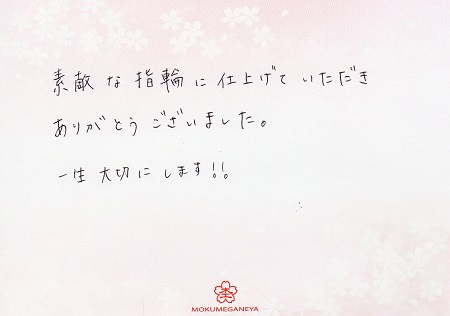 素敵な指輪に仕上げていただき
ありがとうございました。
一生大切にします!!
MOKUMEGANEYA